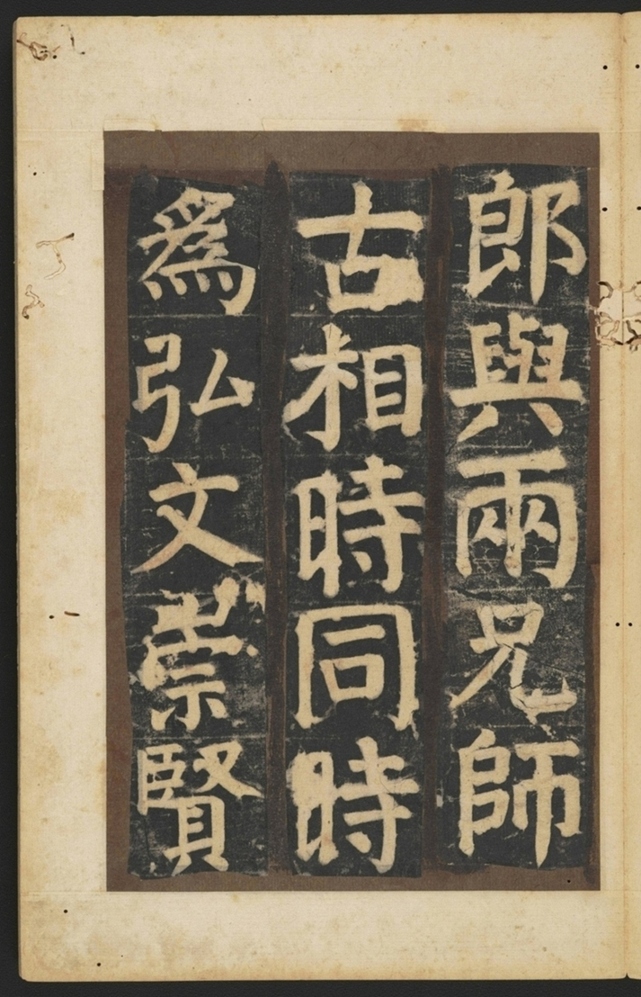 郎與兩兄師
古相時同時
爲弘文崇賢